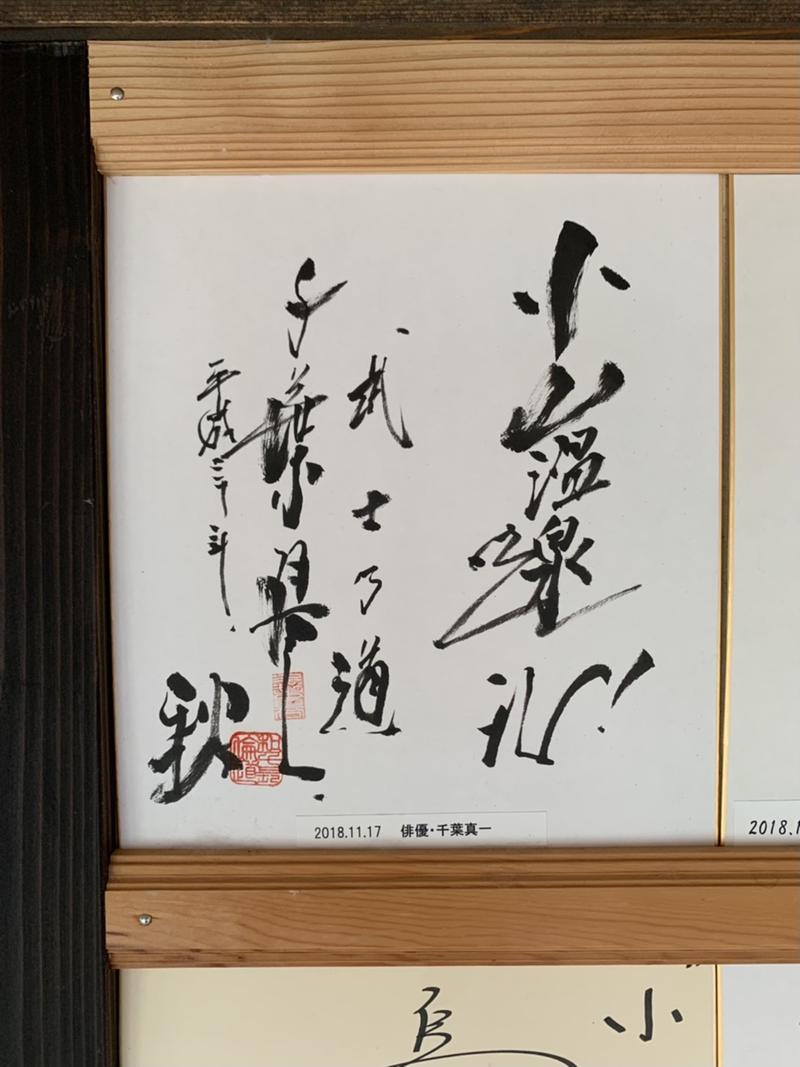 小山温泉
礼!
武士乃道
千葉真一
平成三十年
秋
2018.11.17 俳優・千葉真一
2018.1
小